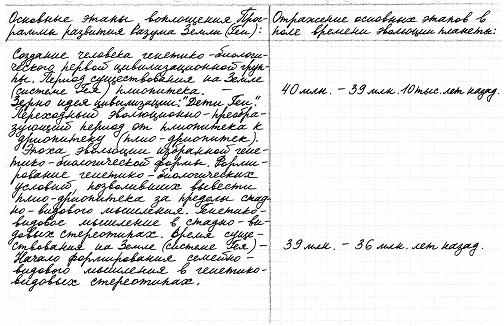 Основные этапы воплощения Про-
граммы развития Разума Земли (Геи):
Отражение основных этапов в
поле времени эволюции планеты:
Создание человека генетико-биологи-
ческого первой цивилизационной груп-
пы. Период существования на Земле
(системе Гея) плиопитека. –
40 млн. – 39 млн. 10 тыс. лет назад.
Зерно идея цивилизации: "Дети Геи".
Переходный эволюционно-преобра-
зующий период от плиопитека к
дриопитеку (плио-дриопитек).
Эпоха эволюции избранной гене-
тико-биологической формы. Форми-
рование генетико-биологических
условий, позволивших вывести
плио-дриопитека за пределы стад-
но-видового мышления. Генетико-
видовое мышление в стадно-ви-
довых стереотипах. Время суще-
ствования на Земле (системе Гея) –
39 млн. – 36 млн. лет назад.
Начало формирования семейно-
видового мышления в генетико-
видовых стереотипах.